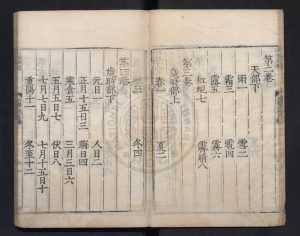 第二卷
天部下
雨一 雪二
霜三 雹四
露五 霧六
虹蜺七 霽晴八
第三卷
歲時部上
春一 夏二
秋三 冬四
第四卷
歲時部下
元日一 人日二
正月十五日三 晦日四
寒食五 三月三日六
五月五日七 伏日八
七月七日九 七月十五日十
重陽十一 冬至十二